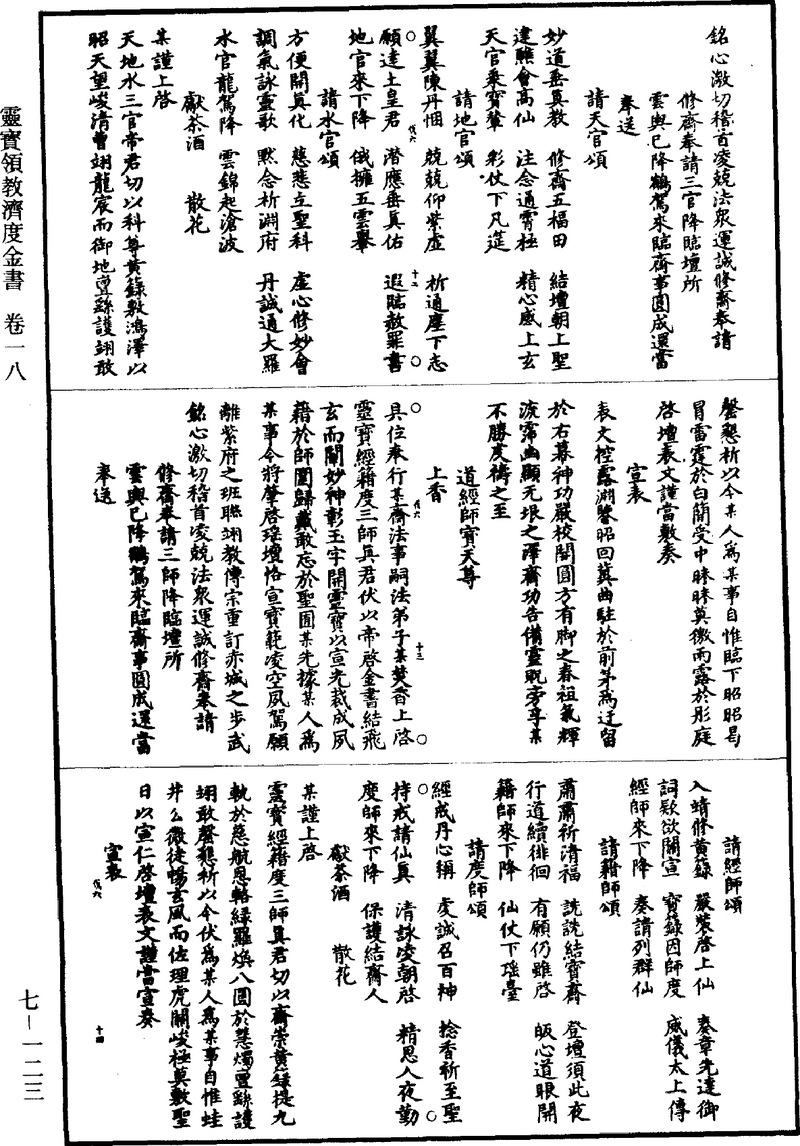 銘心激切稽首凌兢法眾運誠修齋奉請
修齋奉請三官降臨壇所
雲輿已降鶴駕來臨齋事圓成還當
奉送
請天官頌
妙道垂真教　修齋五福田　結壇朝上聖
達聽會高仙　注念通霄極　精心感上玄
天官乘寶輦　彩仗下凡筵
請地官頌
翼翼陳丹悃　兢兢仰紫虛　祈通塵下志
願達土皇君　潛應垂真佑　遐臨赦罪書
地官來下降　俄擁五雲轝
請水官頌
方便開真化　慈悲立聖科　虛心修妙會
調氣詠靈歌　默念祈淵府　丹誠通大羅
水官龍駕降　雲錦起滄波
獻茶酒　散花
某謹上啓
天地水三官帝君切以科尊黃籙敷鴻澤以
昭天望峻清曹翊龍宸而御地亶繇護翊敢
罄懇祈以今某人為某事自惟臨下昭昭曷
冒雷霆於白簡受中昧昧莫徼雨露於彤庭
啓壇表文謹當敷奏
宣表
表文控露淵鑒昭回冀曲駐於前茅為迂留
於右幕神功嚴校閤圓方有脚之春祖氣輝
流霈幽顯无垠之澤齋功告備靈貺旁孚某
不勝虔禱之至
道經師寶天尊
上香
具位奉行某齋法事嗣法弟子某焚香上啓
靈寶經籍度三師真君伏以帝啓金書結飛
玄而闡妙神彰玉字開靈寶以宣光裁成夙
藉於師圍歸戴敢忘於聖囿某先據某人為
某事今將肇啓瑤壇恪宣寶範凌空夙駕願
離紫府之班聯翊教傳宗重訂赤城之步武
銘心激切稽首凌兢法眾運誠修齋奉請
修齋奉請三師降臨壇所
雲輿已降鶴駕來臨齋事圓成還當
奉送
請經師頌
入靖修黃籙　嚴裝啓上仙　奏章先達御
詞疑欲關宣　寶籙因師度　威儀太上傳
經師來下降　奏請列群仙
請籍師頌
肅肅祈清福　詵詵結寶齋　登壇須此夜
行道續徘徊　有願仍雖啓　皈心道眼開
籍師來下降　仙仗下瑤臺
請度師頌
經成丹心稱　虔誠召百神　捻香祈至聖
持戒請仙真　清詠凌朝啓　精思入夜勤
度師來下降　保護結齋人
獻茶酒　散花
某謹上啓
靈寶經籍度三師真君切以齋崇黃籙提九
軌於慈航恩輅綠羅煥八圓於慧燭亶繇護
翊敢罄懇祈以今伏為某人為某事自惟蛙
井么微徒暢玄風而佐理虎關峻極莫敷聖
日以宣仁啓壇表文謹當宣奏
宣表
戊六
十二
戊六
十三
戊六
十四
靈寶領教濟度金書　卷一八
七—一二三